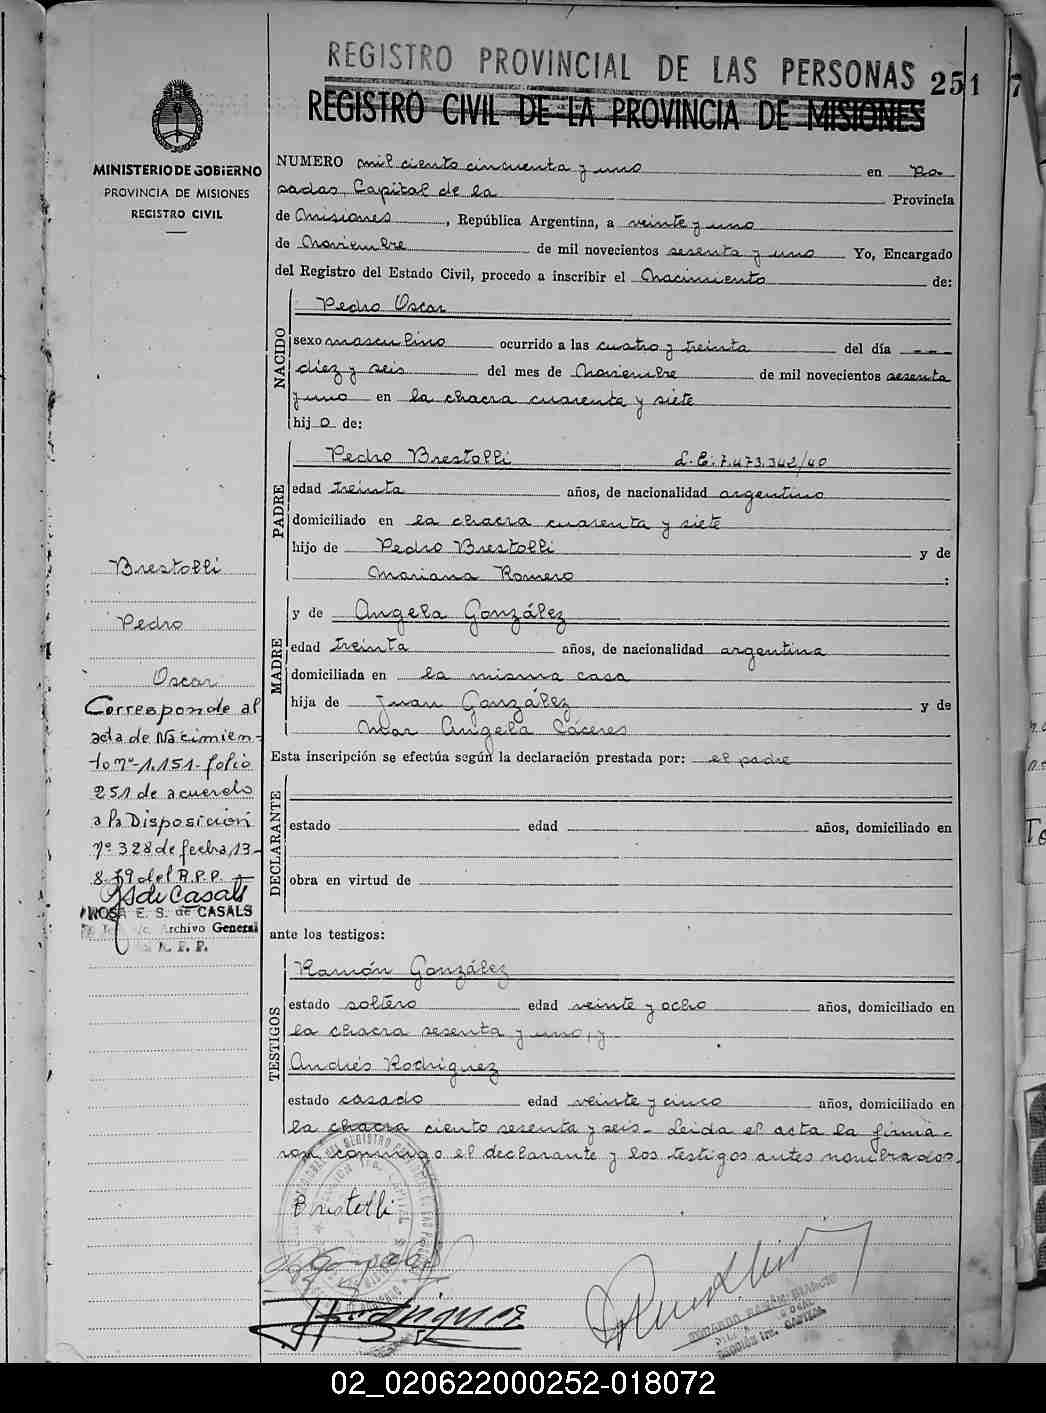 REGISTRO PROVINCIAL DE LAS PERSONAS 251 7
REGISTRO CIVIL DE LA PROVINCIA DE MISIONES
MINISTERIO DE GOBIERNO
PROVINCIA DE MISIONES
REGISTRO CIVIL
NUMERO mil ciento cincuenta y uno en Po
sadas, Capital de la Provincia
de Misiones, República Argentina, a veinte y uno
de Noviembre de mil novecientos sesenta y uno Yo, Encargado
del Registro del Estado Civil, procedo a inscribir el Nacimiento de:
NACIDO
Pedro Oscar
sexo masculino ocurrido a las cuatro y treinta del día ---
diez y seis del mes de Noviembre de mil novecientos sesenta
y uno en la chacra cuarenta y siete
hij o de:
PADRE
Pedro Brestolli L.E. 7.473.342/40
edad treinta años, de nacionalidad argentino
domiciliado en la chacra cuarenta y siete
hijo de Pedro Brestolli y de
Mariana Romero :
MADRE
y de Angela González
edad treinta años, de nacionalidad argentina
domiciliada en la misma casa
hija de Juan González y de
Mar Angela Cáceres
Esta inscripción se efectúa según la declaración prestada por: el padre
DECLARANTE
estado edad años, domiciliado en
obra en virtud de
ante los testigos:
TESTIGOS
Ramón González
estado soltero edad veinte y ocho años, domiciliado en
la chacra sesenta y uno, y
Andrés Rodríguez
estado casado edad veinte y cinco años, domiciliado en
la chacra ciento sesenta y seis- Leida el acta la firma-
ron conmigo el declarante y los testigos antes nombrados.
Brestolli
Brestolli
Pedro
Oscar
Corresponde al
acta de Nacimien-
to nº-1.151-folio
251 de acuerdo
a la Disposición
nº 328 de fecha 13-
8-79 del R.P.P.
ROSA E. S. de CASALS
Archivo General
R. P. P.
02_020622000252-018072